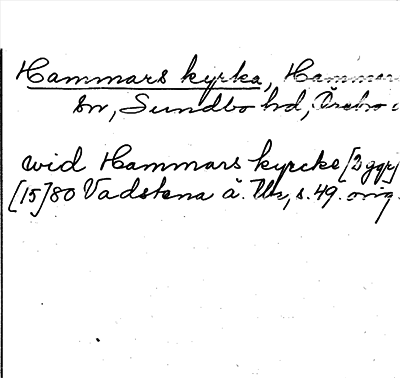 Hammars kyrka, Hammar
sn, Sundbo hd, Örebro
wid Hammars kyrcke [2 ggr]
[15]80 Vadstena ä. Uu, s. 49. orig.